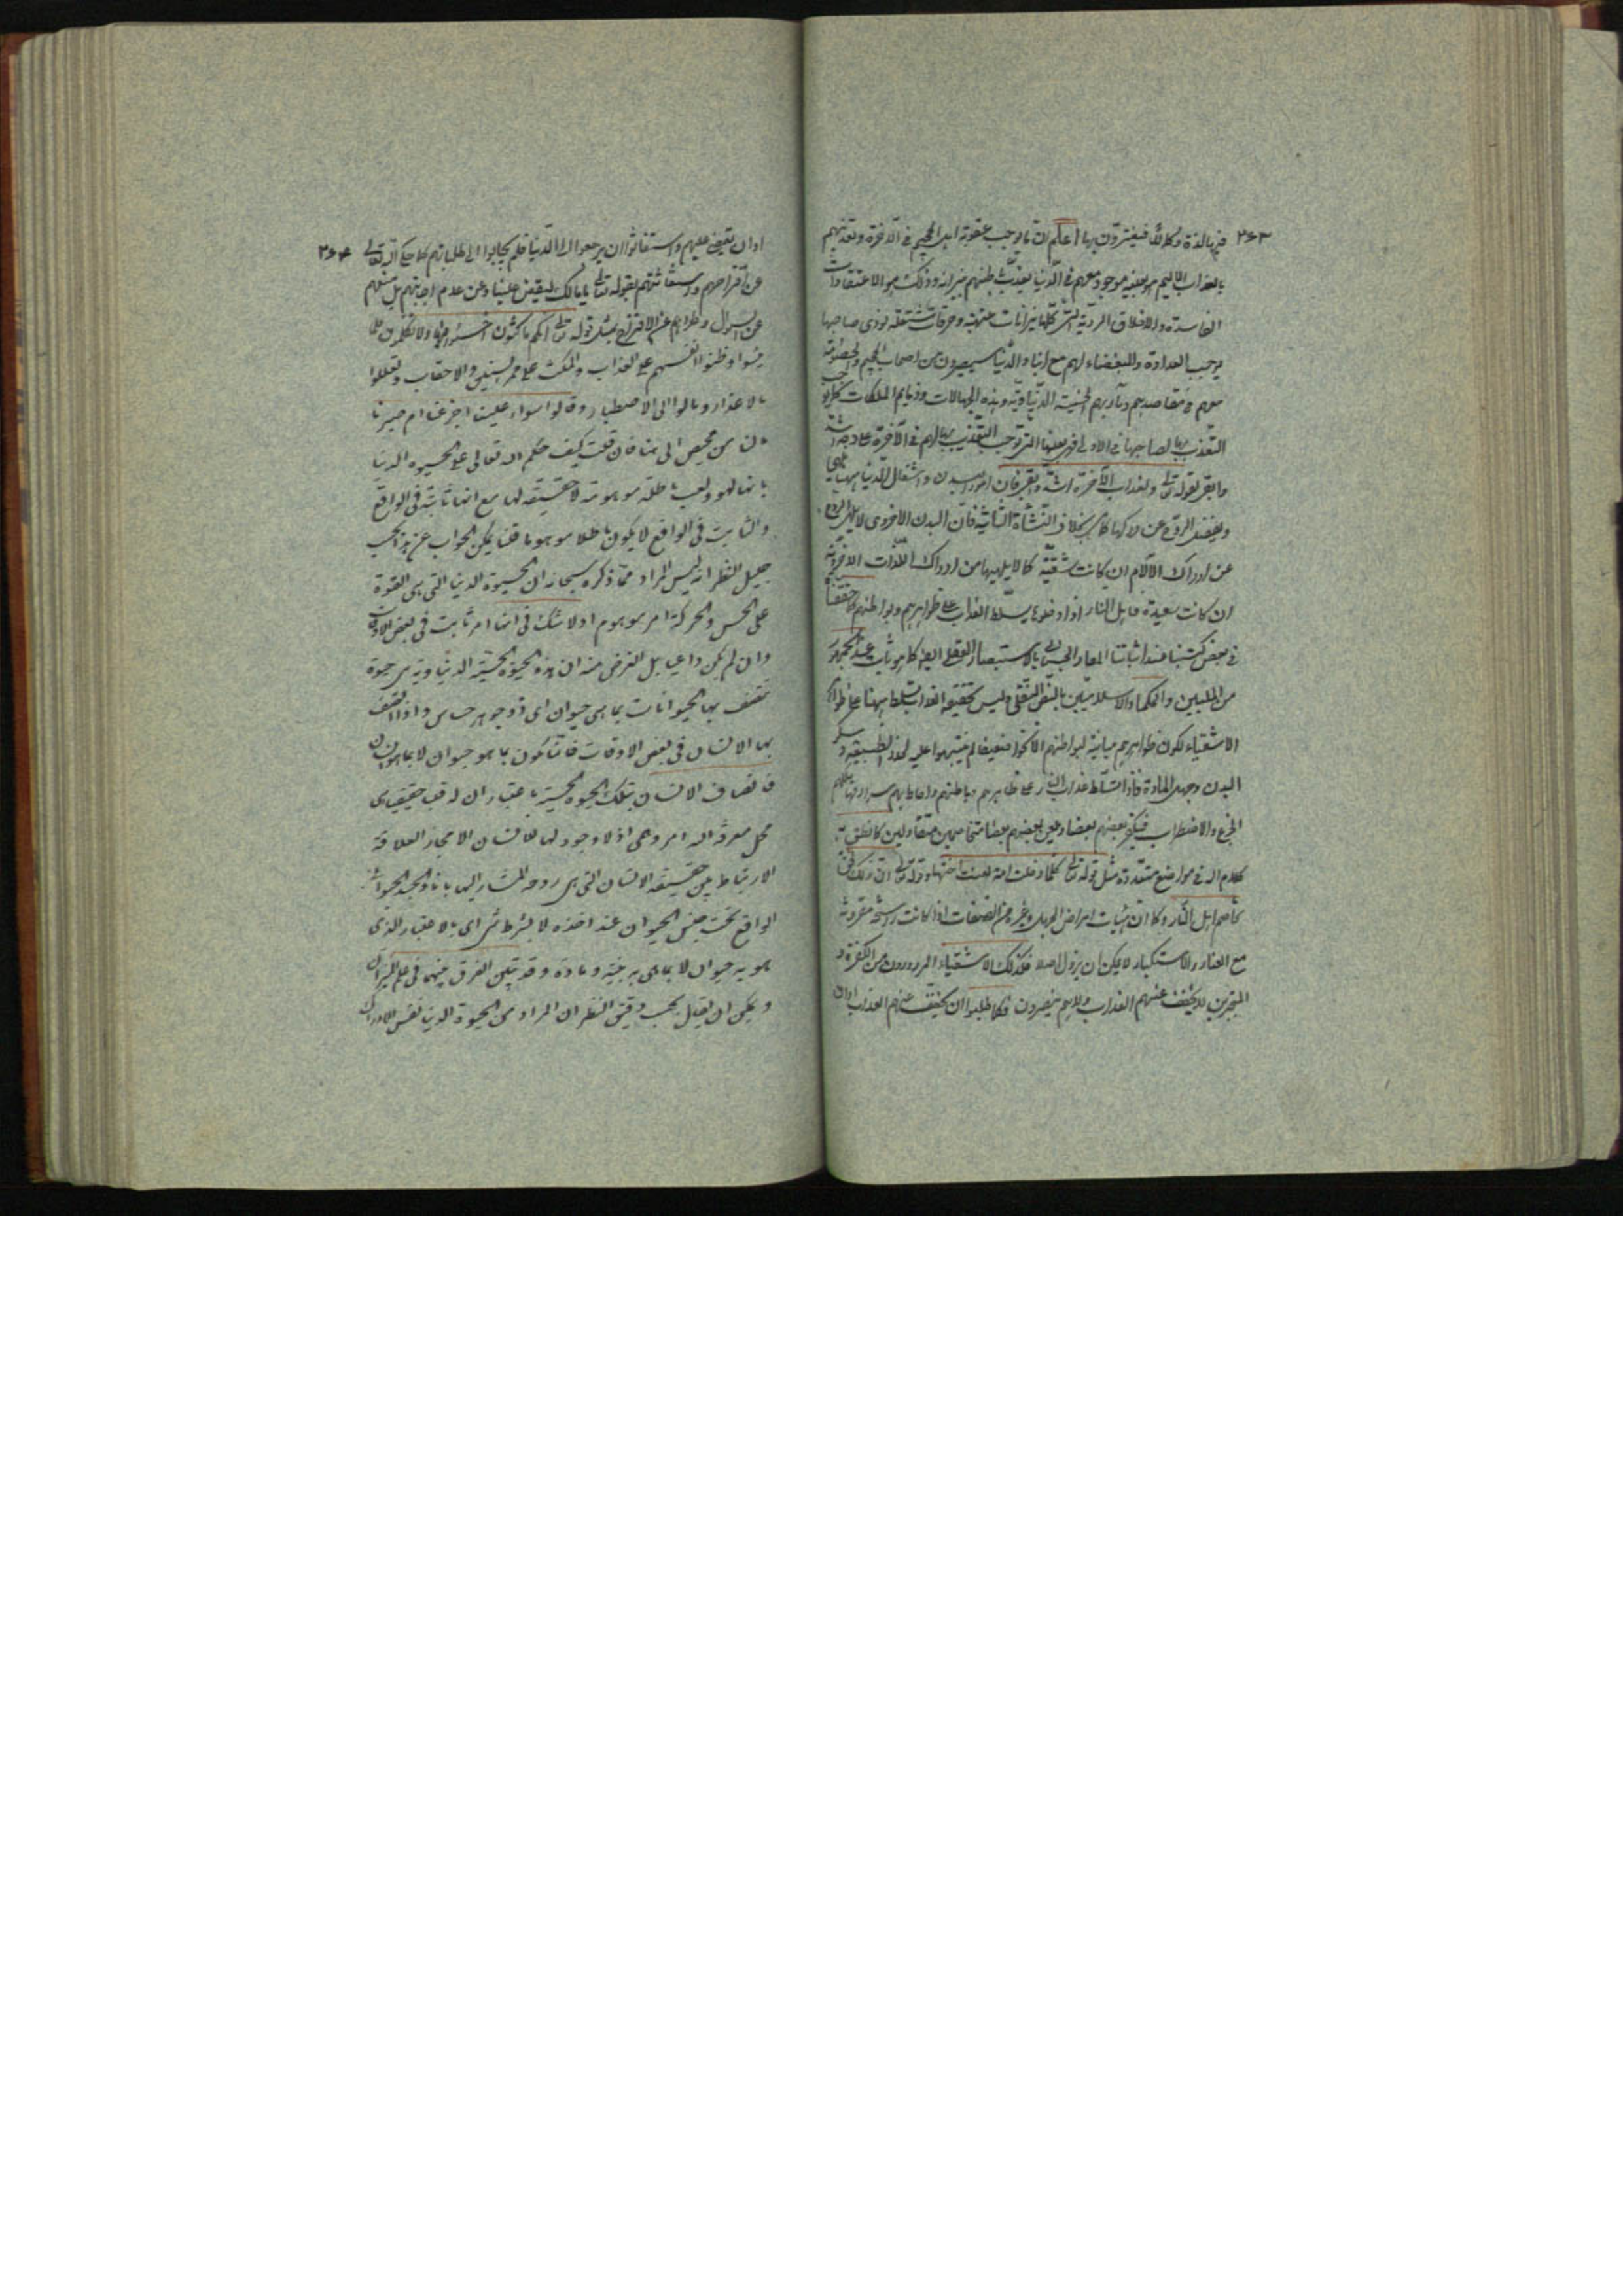 ٣٦٣
فيها لذة وكلا لذة فيغترون بها اعلم ان ما يوجب عقوبة اهل الجحيم في الآخرة وتعذبهم
بالعذاب الاليم هو بعينه موجود معهم في الدنيا يعذب باطنهم نيرانه وذلك هو الاعتقادات
الفاسدة والاخلاق الردية التي كلها نيرانات وحرقات مشتعلة توذي صاحبها
يوجب العداوة والبغضاء لهم مع ابناء الدنيا سيصيرون من اصحاب الجحيم
معهم في مقاصدهم ومآربهم الخسيسة الدنياوية وهذه الجهالات وذمايم الملكات كما يوجب
التعذب بها لصاحبها في الاولى فهي بعينها التي توجب التعذيب بها لهم في الآخرة على وجه اشد
وابقى لقوله تعالى ولعذاب الآخرة اشد وابقى فان امور البدن واشتغال الدنيا مما يلهي
ويغفل الروح عن دركها كما هي بخلاف النشأة الثانية فان البدن الاخروي لا يلهي الروح
عن ادراك الآلام ان كانت شقية كما لا يلهيها من ادراك اللذات الاخروية
ان كانت سعيدة فاهل النار اذا دخلوها يسلط العذاب على ظواهرهم وبواطنهم كما حققنا
في بعض كتبنا عند اثباتنا المعاد الجسماني بالاستبصار العقلي ايضا كما هو ثابت عند الجمهور
من المليين والحكماء الاسلاميين بالنص النقلي وليس تحقيقه العذاب يتسلط ههنا على ظواهر
الاشقياء لكون ظواهرهم مباينة لبواطنهم الا نحوا ضعيفا لم يتنبهوا عليه لخدر الطبيعة وسكر
البدن وجهل المادة فاذا تسلط عذاب النار على ظاهرهم وباطنهم واحاط بهم سرادقها
الجزع والاضطراب فيكفر بعضهم بعضا ويلعن بعضهم بعضا متخاصمين متقاولين كما نطق به
كلام الله في مواضع متعددة مثل قوله تعالى كلما دخلت امة لعنت اختها وقوله تعالى ان ذلك لحق
تخاصم اهل النار وكما ان هيئات امراض الجهل وغيره من الصفات اذا كانت راسخة مقرونة
مع العناد والاستكبار لا يمكن ان يزول اصلا فكذلك الاشقياء المردودون من الكفرة و
المتجبرين لا يخفف عنهم العذاب ولا هم ينصرون فكما طلبوا ان يخفف عنهم العذاب اوان
٣٦٤
اوان يقضي عليهم واستغاثوا ان يرجعوا الى الدنيا فلم يجابوا الى طلباتهم كما حكى الله تعالى
عن اقتراحهم واستغاثتهم بقوله تعالى يا مالك ليقض علينا وعن عدم اجابتهم بل منعهم
عن السوال وطردهم عن الاقتراح بمثل قوله تعالى انكم ماكثون اخسئوا فيها ولا تكلمون فلما
يئسوا وطنوا انفسهم على العذاب والمكث على ممر السنين والاحقاب وتعللوا
بالاعذار ومالوا الى الاصطبار وقالوا سواء علينا اجزعنا ام صبرنا
ما لنا من محيص الى هنا فان قلت كيف حكم الله تعالى على الحيوة الدنيا
بانها لهو ولعب باطلة موهومة لا حقيقة لها مع انها ثابتة في الواقع
والثابت في الواقع لا يكون باطلا موهوما قلنا يمكن الجواب عن هذا بحسب
جليل النظر انه ليس المراد مما ذكره سبحانه ان الحيوة الدنيا التي هي القوة
على الحس والحركة امر موهوم اذ لا شك في انها امر ثابت في بعض الاوقات
وان لم يكن دائميا بل الغرض منه ان هذه الحيوة الحسية الدنياوية هي حيوة
تتصف بها الحيوانات بما هي حيوان اي ذو جوهر حساس واذا اتصف
بها الانسان في بعض الاوقات فانما يكون بما هو حيوان لا بما هو انسان
فاتصاف الانسان بتلك الحيوة الحسية باعتبار ان له قلب حقيقي هي
محل معرفة الله امر وهمي اذ لا وجود لها للانسان الا بمجاز العلاقة
الارتباط بين حقيقة الانسان التي هي روحه المشار اليها بانا والجسد الحيواني
الواقع تحت جنس الحيوان عند اخذه لا بشرط شيء اي بالاعتبار الذي
هو به حيوان لا بما هي به جنة ومادة وقد تبين الفرق بينهما في علم الميزان
ويمكن ان يقال بحسب دقيق النظر ان المراد من الحيوة الدنيا نفس الادراك